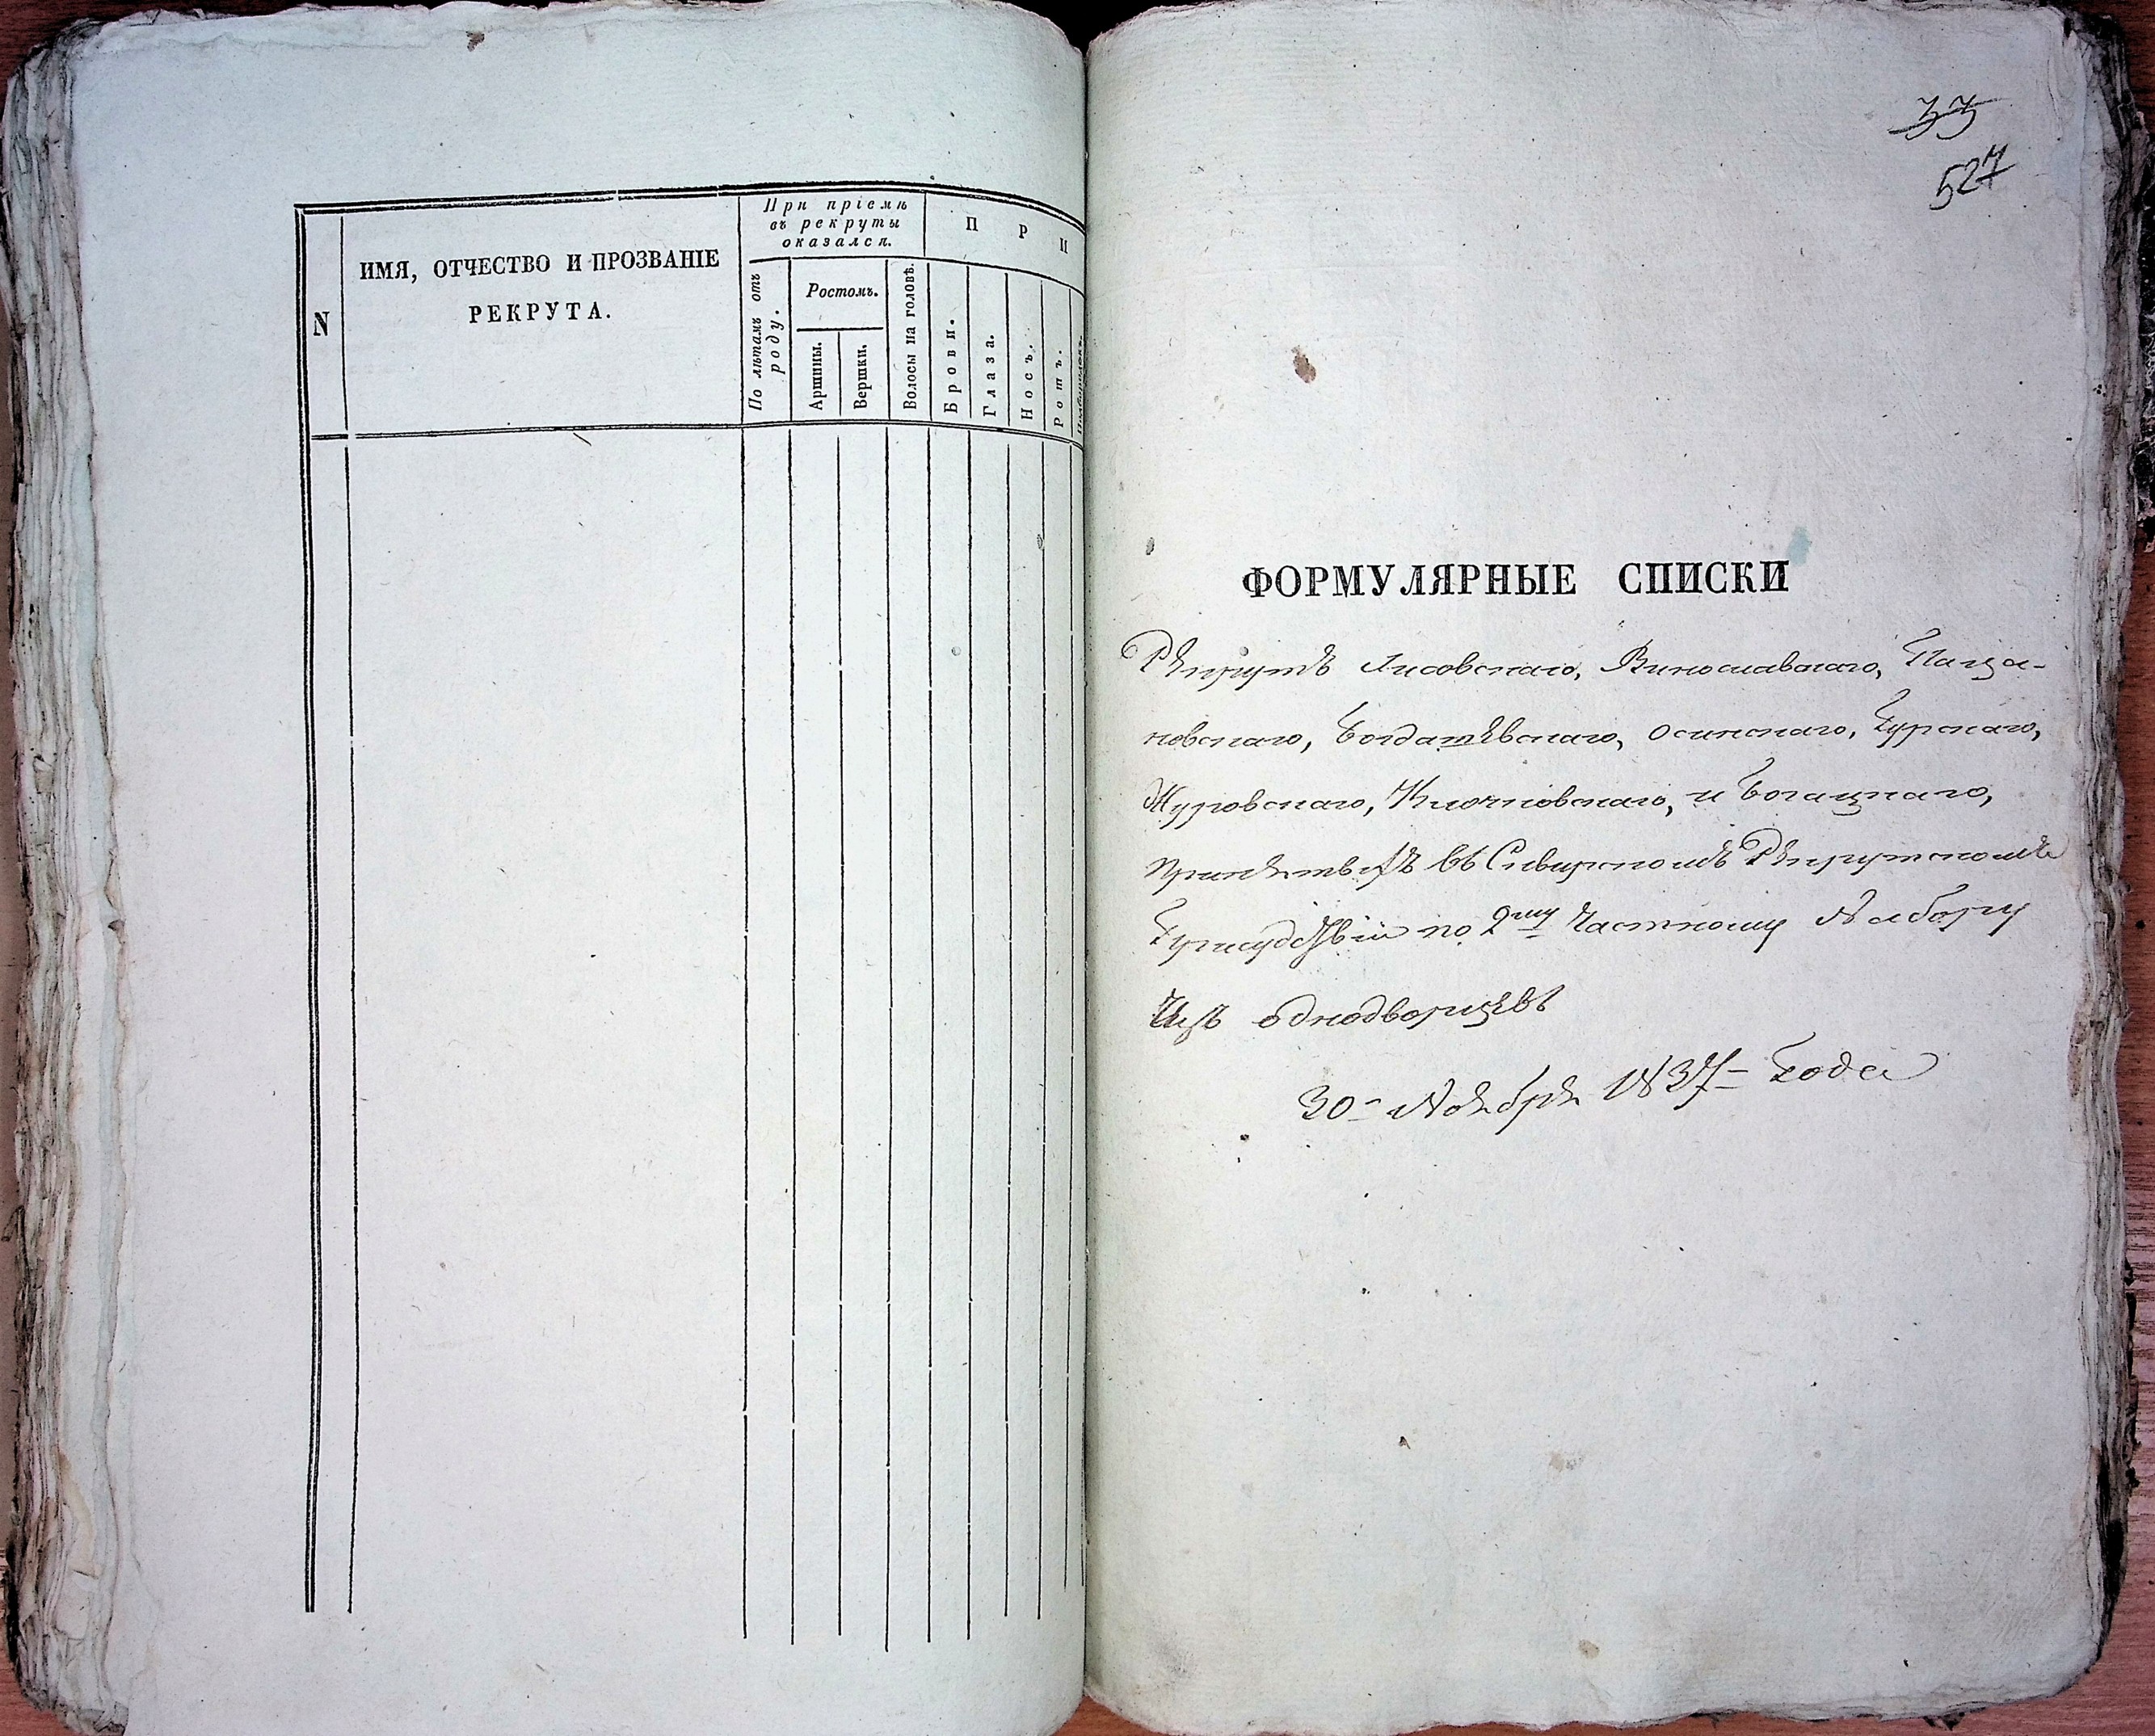 N
ИМЯ, ОТЧЕСТВО И ПРОЗВАНІЕ
РЕКРУТА.
При пріемѣ
въ рекруты
оказался.
По лѣтамъ отъ
роду.
Ростомъ.
Аршины.
Вершки.
Волосы на головѣ.
П Р И
Брови.
Глаза.
Носъ.
Ротъ.
Подбородокъ.
33
527
ФОРМУЛЯРНЫЕ СПИСКИ
Рекрутъ Лисовскаго,
новскаго, Богдашевскаго, Осинскаго, Гурскаго,
Журовскаго, Клочковскаго, и Богацкаго,
Принятыхъ въ Рекрутскомъ
Присудствіи по 2му Частному Набору
Изъ однодворцевъ
30 Ноября 1837 Года